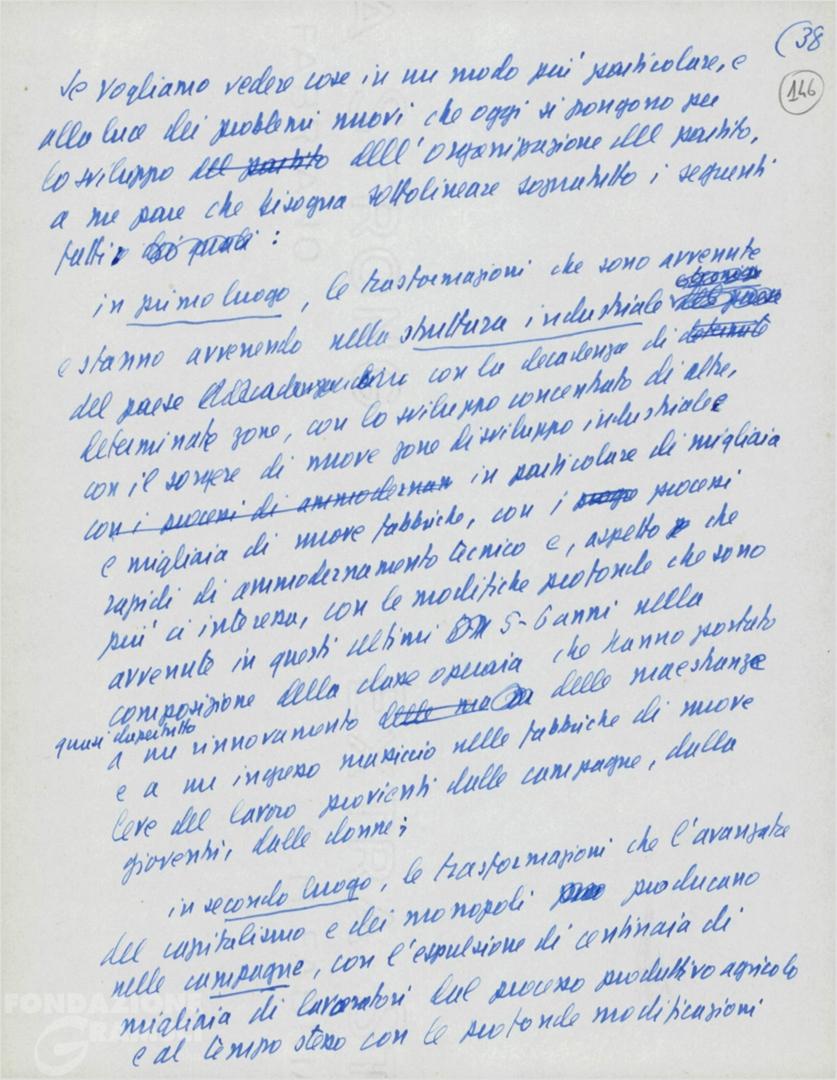 (38
146
Se vogliamo vedere cose in un modo più particolare, e
alla luce dei problemi nuovi che oggi si pongono per
lo sviluppo del partito dell'organizzazione del partito,
a me pare che bisogna sottolineare sopratutto i seguenti
fatti :
in primo luogo, le trasformazioni che sono avvenute
e stanno avvenendo nella struttura industriale
del paese con la decadenza di
determinate zone, con lo sviluppo concentrato di altre,
con il sorgere di nuove zone di sviluppo industriale
con i processi di ammodernam in particolare di migliaia
e migliaia di nuove fabbriche, con i processi
rapidi di ammodernamento tecnico e, aspetto che
più ci interessa, con le modifiche profonde che sono
avvenute in questi ultimi 5-6 anni nella
composizione della classe operaia che hanno portato
quasi dapertutto
a un rinnovamento delle ma delle maestranze
e a un ingresso massiccio nelle fabbriche di nuove
leve del lavoro provienti dalle campagne, dalla
gioventù, dalle donne;
in secondo luogo, le trasformazioni che l'avanzata
del capitalismo e dei monopoli producano
nelle campagne, con l'espulsione di centinaia di
migliaia di lavoratori dal processo produttivo agricolo
e al tempo stesso con le profonde modificazioni
FONDAZIONE
GRAMSCI